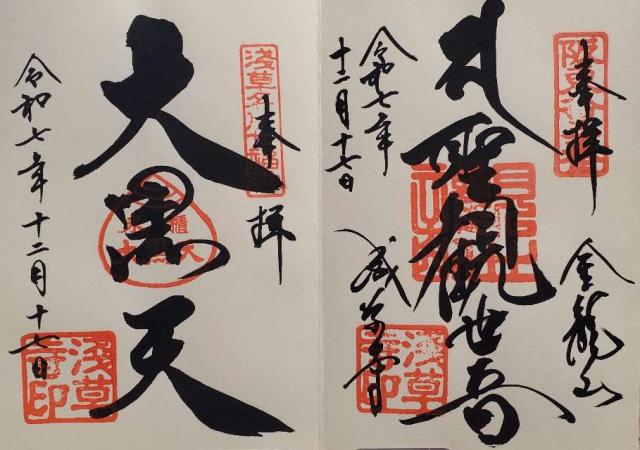 奉拝
聖観世音
金龍山
浅草寺
令和七年
十二月十七日
浅草寺印
奉拝
大黒天
令和七年十二月十七日
浅草名所七福神
浅草寺印